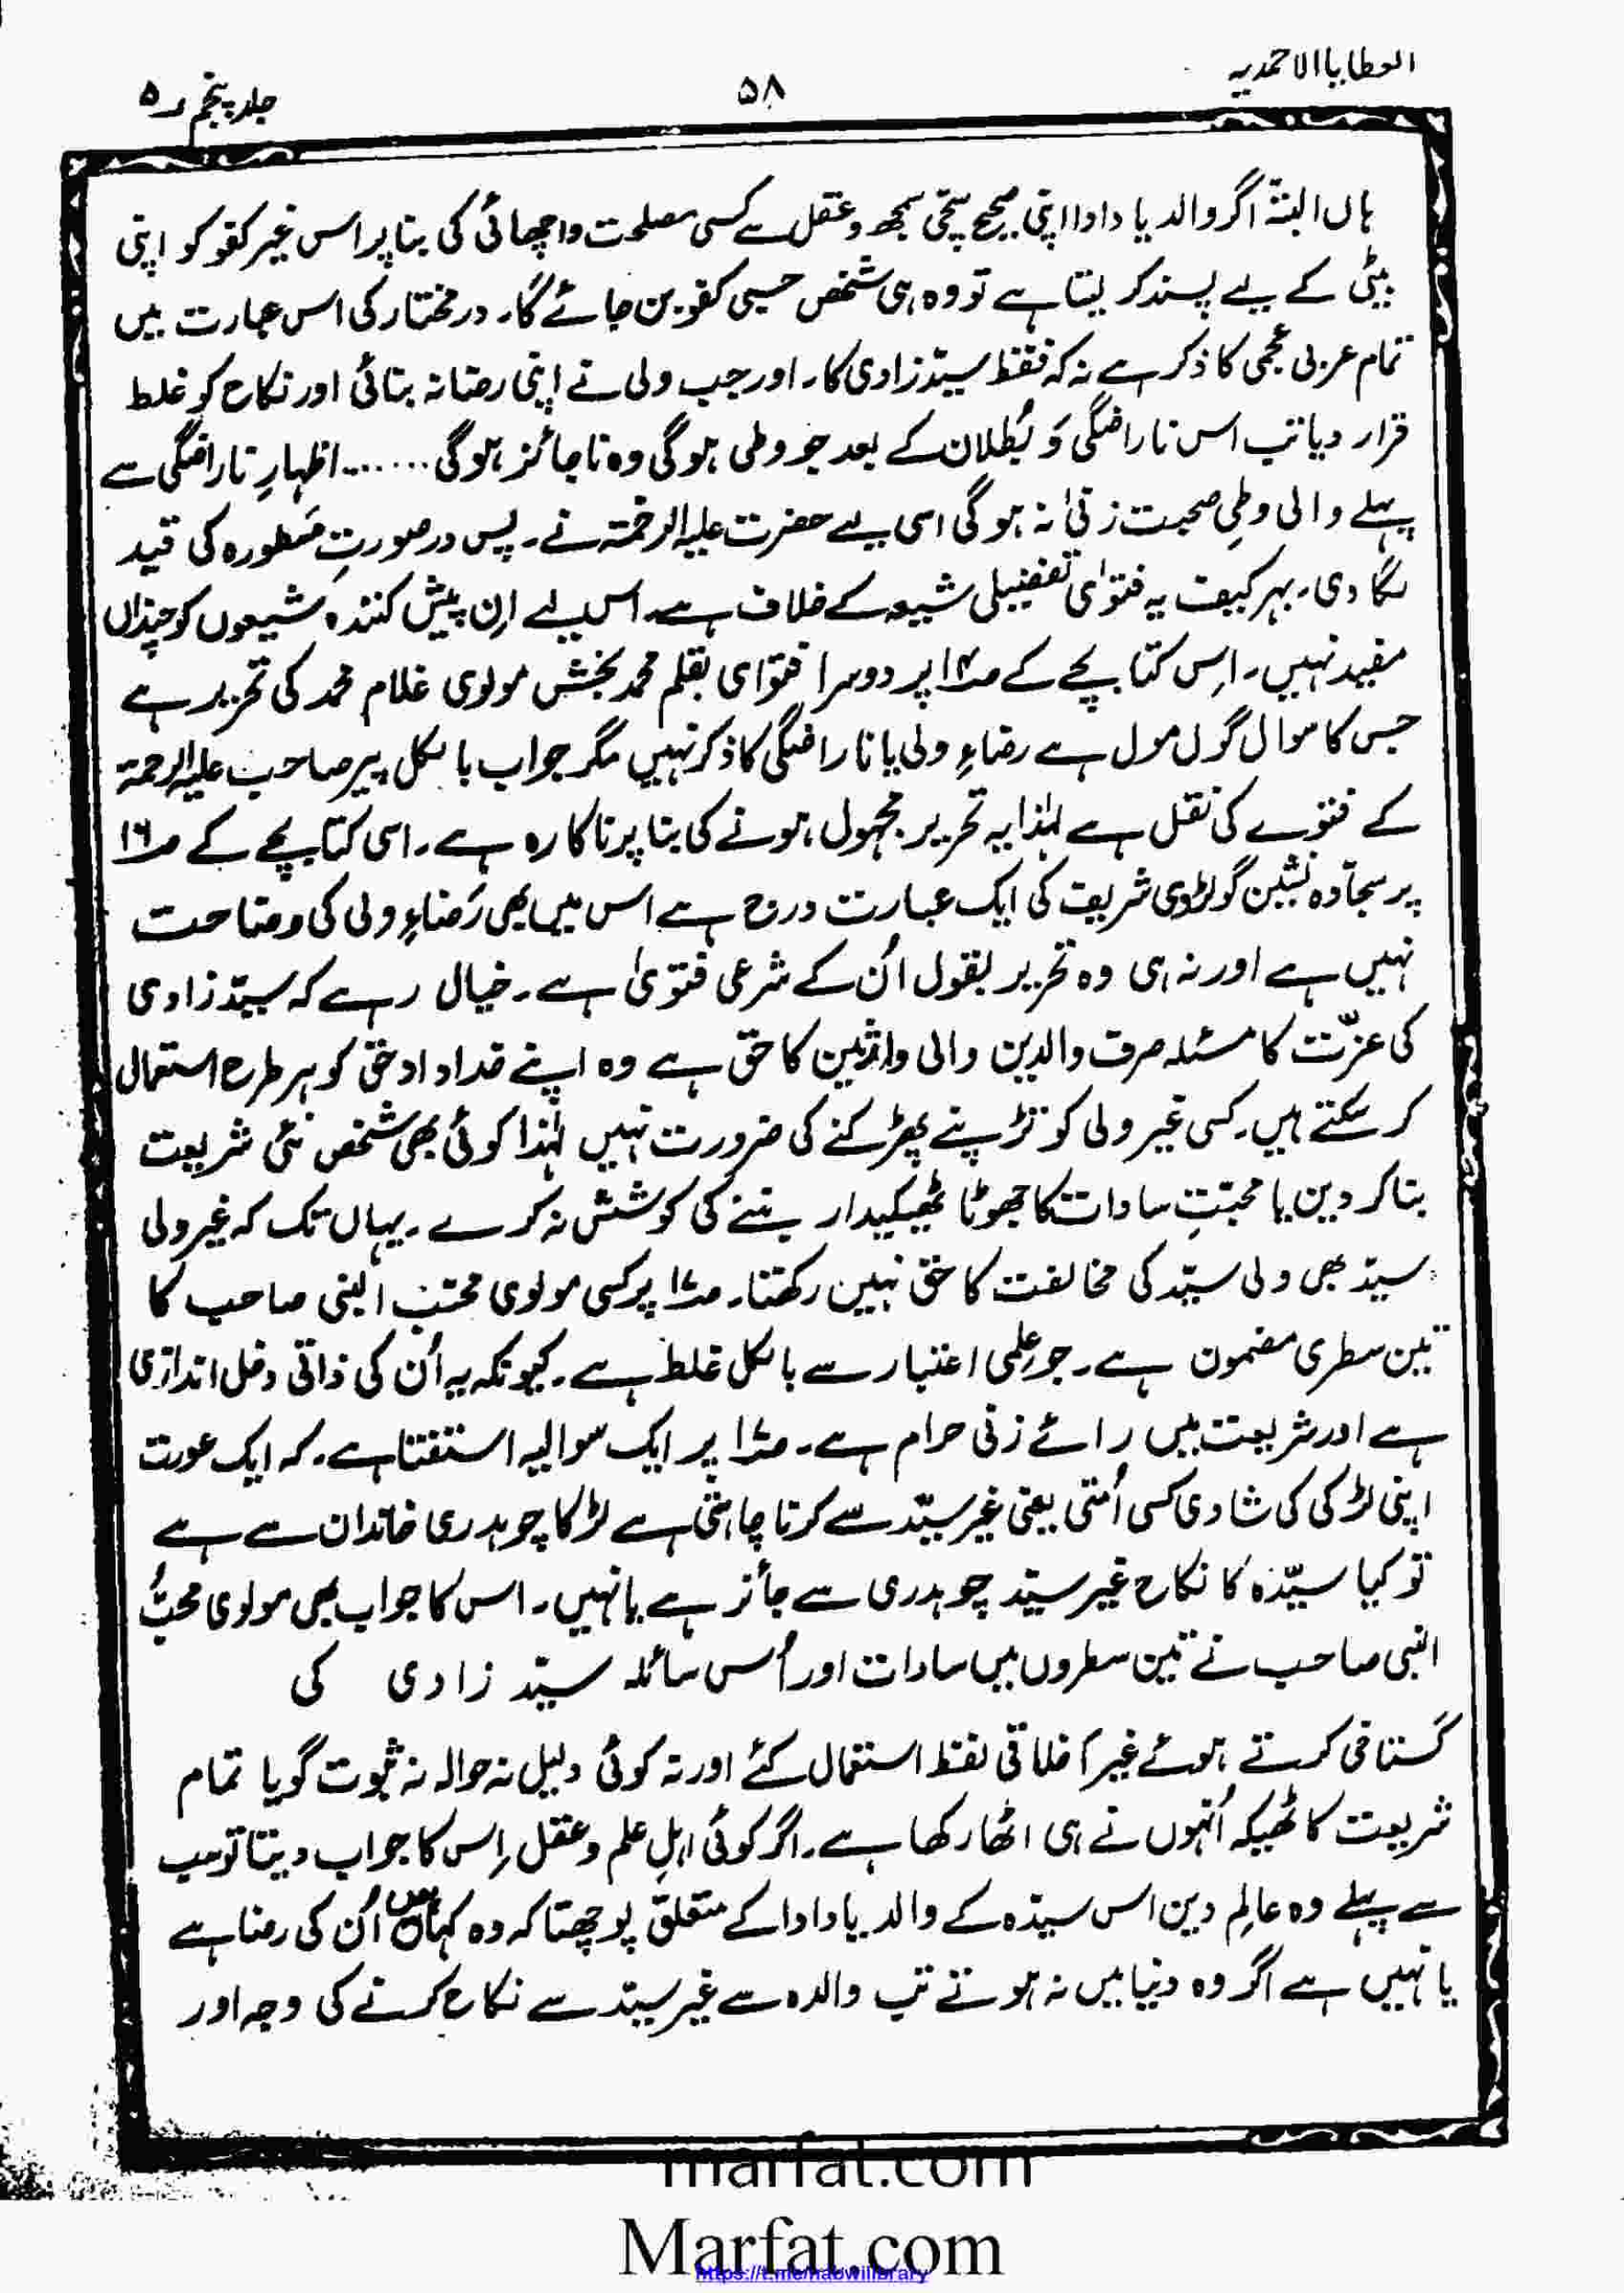 العطایا الاحمدیہ
۵۸
جلد پنجم ۵
ہاں البتہ اگر والد یا دادا اپنی صحیح سچی سمجھ و عقل سے کسی مصلحت و اچھائی کی بنا پر اس غیر کفو کو اپنی
بیٹی کے لیے پسند کر لیتا ہے تو وہ ہی شخص حسبی کفو بن جائے گا۔ در مختار کی اس عبارت میں
تمام عربی عجمی کا ذکر ہے نہ کہ فقط سیّد زادی کا۔ اور جب ولی نے اپنی رضا نہ بتائی اور نکاح کو غلط
قرار دیا تب اس ناراضگی وَ بُطلان کے بعد جو وطی ہوگی وہ ناجائز ہوگی ...... اظہارِ ناراضگی سے
پہلے والی وطیِ صحبت زنیٰ نہ ہوگی اسی لیے حضرت علیہ الرحمۃ نے۔ پس در صورتِ مَسطورہ کی قید
لگا دی۔ بہر کیف یہ فتوٰی تفضیلی شیعہ کے خلاف ہے۔ اس لیے اِن پیش کنندہ شیعوں کو چنداں
مفید نہیں۔ اِس کتابچے کے صـ۱۴ پر دوسرا فتوٰی بقلم محمد بخش مولوی غلام محمد کی تحریر ہے
جس کا سوال گول مول ہے رضاءِ ولی یا ناراضگی کا ذکر نہیں مگر جواب بالکل پیر صاحب علیہ الرحمۃ
کے فتوے کی نقل ہے لہٰذا یہ تحریر مجہول ہونے کی بنا پر ناکارہ ہے۔ اسی کتابچے کے صـ۱۶
پر سجّادہ نشین گولڑوی شریف کی ایک عبارت درج ہے اس میں بھی رَضاءِ ولی کی وضاحت
نہیں ہے اور نہ ہی وہ تحریر بقول اُن کے شرعی فتویٰ ہے۔ خیال رہے کہ سیّد زادی
کی عزّت کا مسئلہ صرف والدین والی وارثین کا حق ہے وہ اپنے خداداد حق کو ہر طرح استعمال
کر سکتے ہیں۔ کسی غیر ولی کو تڑپنے پھڑکنے کی ضرورت نہیں لہٰذا کوئی بھی شخص نئی شریعت
بنا کر دین یا محبّتِ سادات کا جھوٹا ٹھیکیدار بننے کی کوشش نہ کرے۔ یہاں تک کہ غیر ولی
سیّد بھی ولی سیّد کی مخالفت کا حق نہیں رکھتا۔ پر کسی مولوی محبّ النبی صاحب کا
تین سطری مضمون ہے۔ جو علمی اعتبار سے بالکل غلط ہے۔ کیونکہ یہ اُن کی ذاتی دخل اندازی
ہے اور شریعت میں رائے زنی حرام ہے۔ پر ایک سوالیہ استفتا ہے۔ کہ ایک عورت
اپنی لڑکی کی شادی کسی اُمّتی یعنی غیر سیّد سے کرنا چاہتی ہے لڑکا چوہدری خاندان سے ہے
تو کیا سیّدہ کا نکاح غیر سیّد چوہدری سے جائز ہے یا نہیں۔ اس کا جواب بھی مولوی محبُّ
النبی صاحب نے تین سطروں میں سادات اور اُس سائلہ سیّد زادی کی
گستاخی کرتے ہوئے غیر اخلاقی لفظ استعمال کئے اور نہ کوئی دلیل نہ حوالہ نہ ثبوت گویا تمام
شریعت کا ٹھیکہ اُنہوں نے ہی اٹھا رکھا ہے۔ اگر کوئی اہلِ علم و عقل اِس کا جواب دیتا تو سب
سے پہلے وہ عالِم دین اس سیدہ کے والد یا دادا کے متعلق پوچھتا کہ وہ کہاں ہیں اُن کی رضا ہے
یا نہیں ہے اگر وہ دنیا میں نہ ہوتے تب والدہ سے غیر سیّد سے نکاح کرنے کی وجہ اور
marfat.com
Marfat.com
https://t.me/nabwilibrary